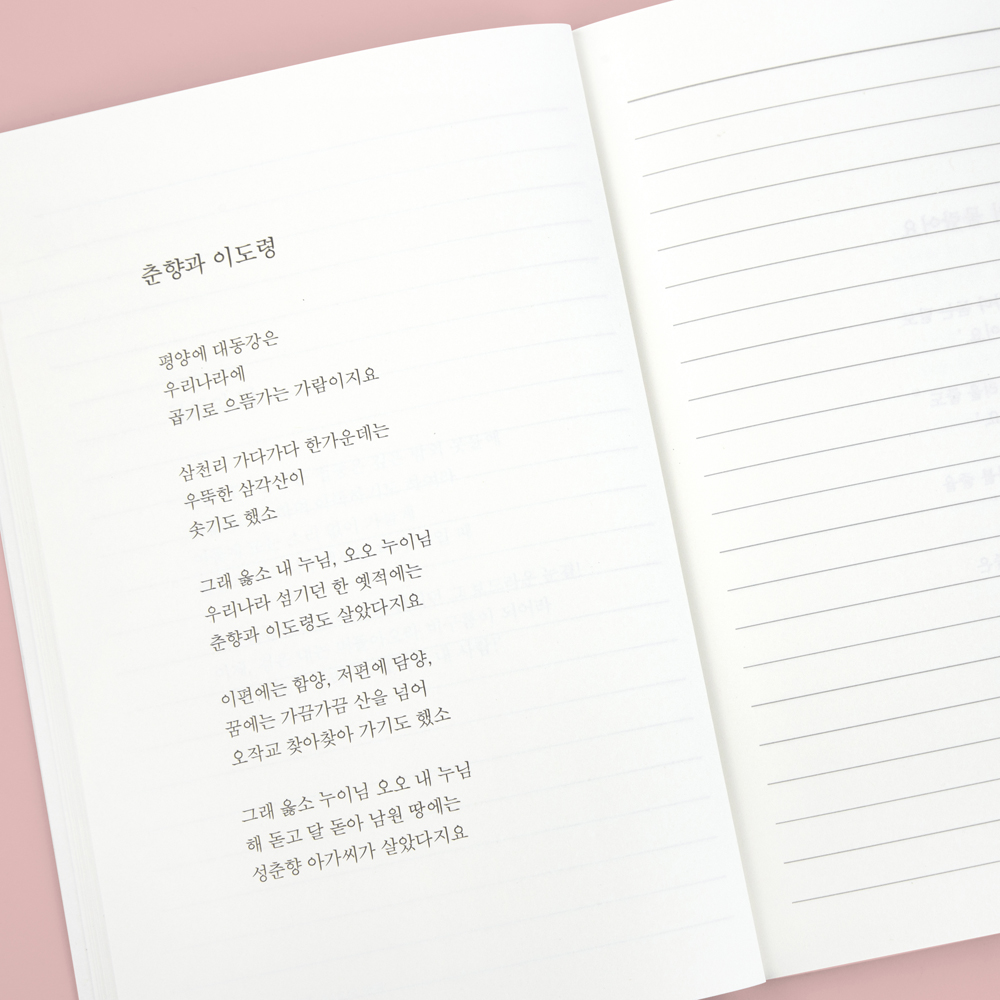 춘향과 이도령
평양에 대동강은
우리나라에
곱기로 으뜸가는 가람이지요
삼천리 가다가다 한가운데는
우뚝한 삼각산이
솟기도 했소
그래 옳소 내 누님, 오오 누이님
우리나라 섬기던 한 옛적에는
춘향과 이도령도 살았다지요
이편에는 함양, 저편에 담양,
꿈에는 가끔가끔 산을 넘어
오작교 찾아찾아 가기도 했소
그래 옳소 누이님 오오 내 누님
해 돋고 달 돋아 남원 땅에는
성춘향 아가씨가 살았다지요